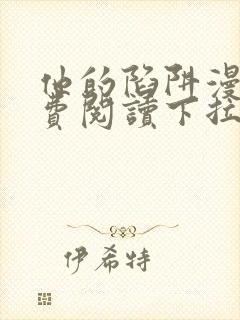 他的陷阱漫
費閱讀下拉
伊希特